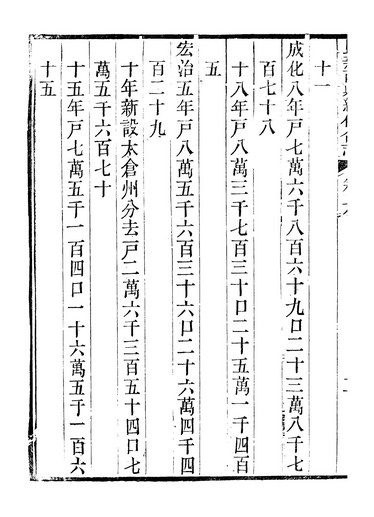 十一
成化八年戸七萬六千八百六十九口二十三萬八千七
百七十八
十八年戸八萬三千七百三十口二十五萬一千四百
五
宏治五年戸八萬五千六百三十六口二十六萬四千四
百二十九
十年新設太倉州分去戸二萬六千三百五十四口七
萬五千六百七十
十五年戸七萬五千一百四口一十六萬五千一百六
十五